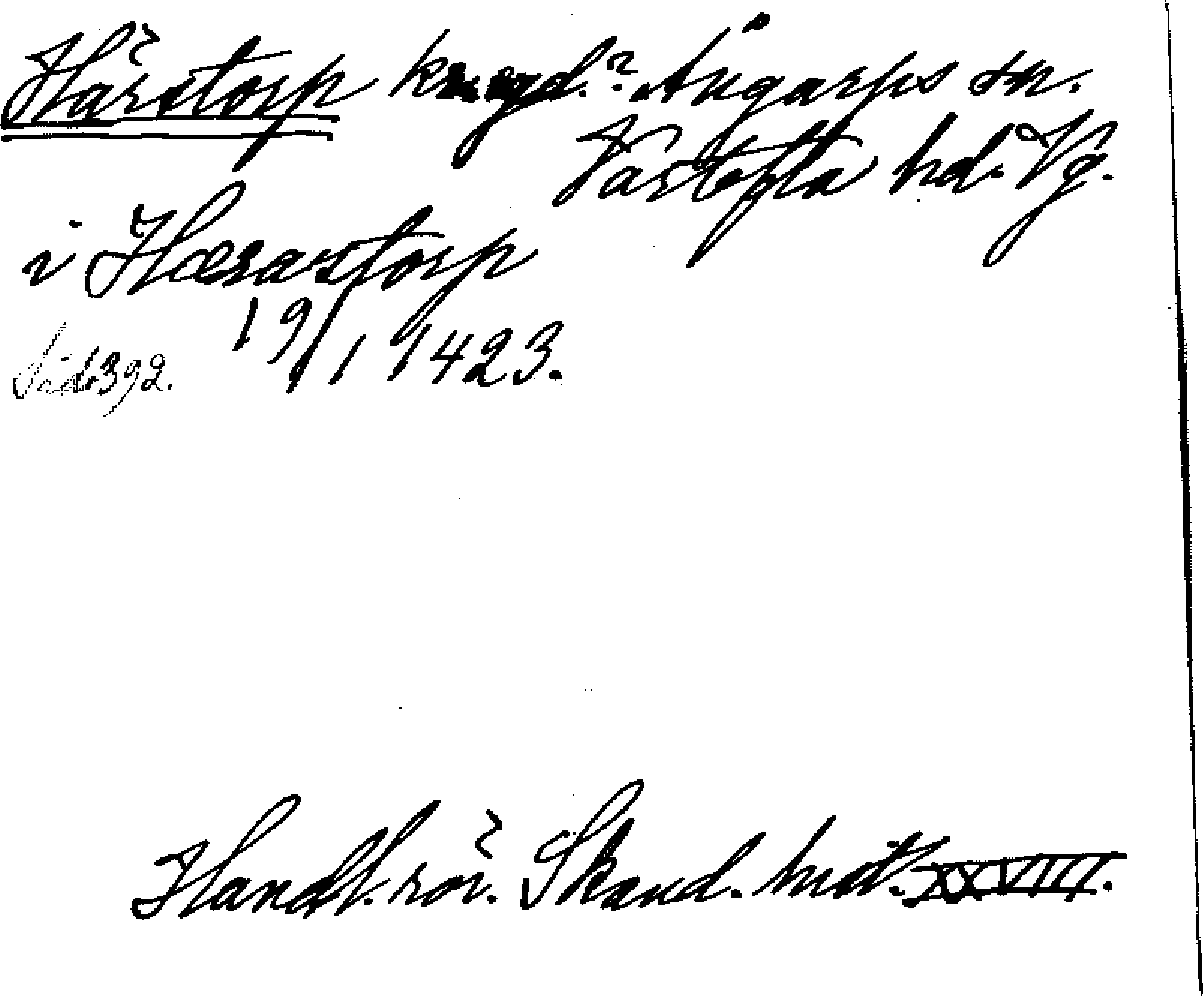 Härstorp kr.egd.? Ängarps sn.
Vartofta hd. Vg.
i Hærastorp
19/1 1423.
Sid.392.
Handl. rör. Skand. hist. XXVIII.